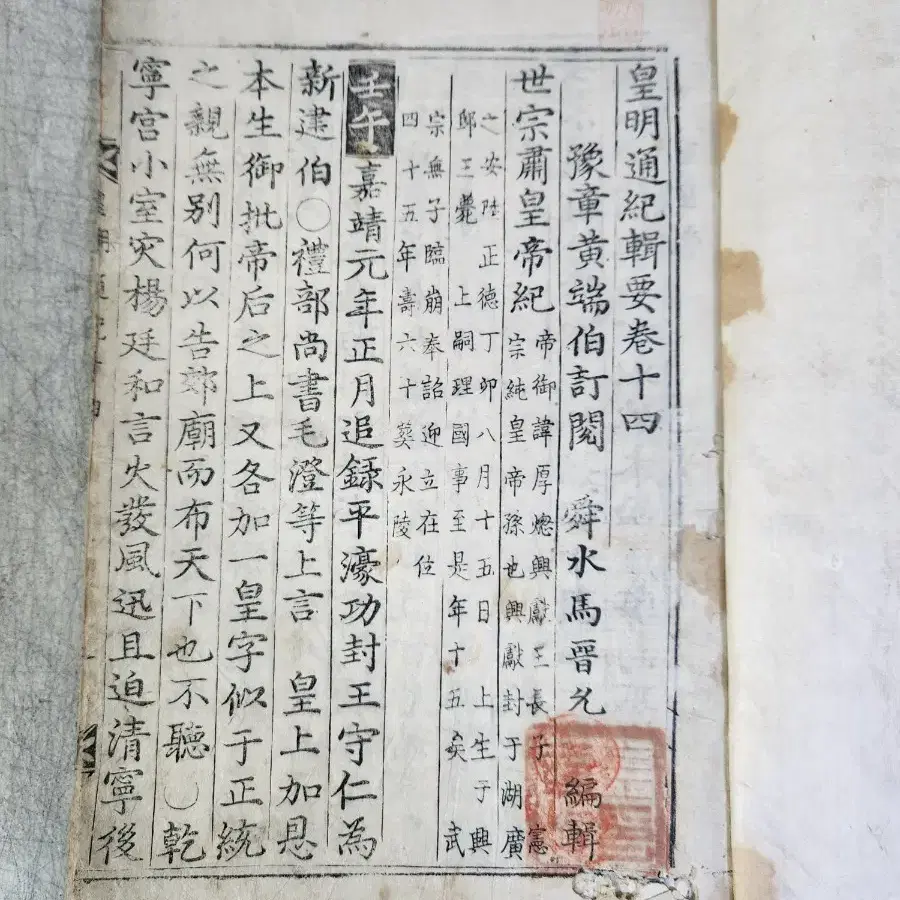 皇明通紀輯要卷十四
豫章黃端伯訂閱 舜水馬晉允 編輯
世宗肅皇帝紀
帝御諱厚熜興獻王長子憲
宗純皇帝孫也興獻封于湖廣
之安陸正德丁卯八月十五日 上生于興
邸三薨 上嗣理國事至是年十五矣武
宗無子臨崩奉詔迎立在位
四十五年壽六十葬永陵
壬午 嘉靖元年正月追録平濠功封王守仁為
新建伯○禮部尚書毛澄等上言 皇上加恩
本生御批帝后之上又各加一皇字似于正統
之親無別何以告郊廟而布天下也不聽○乾
寧宮小室灾楊廷和言火發風迅且迫清寧後